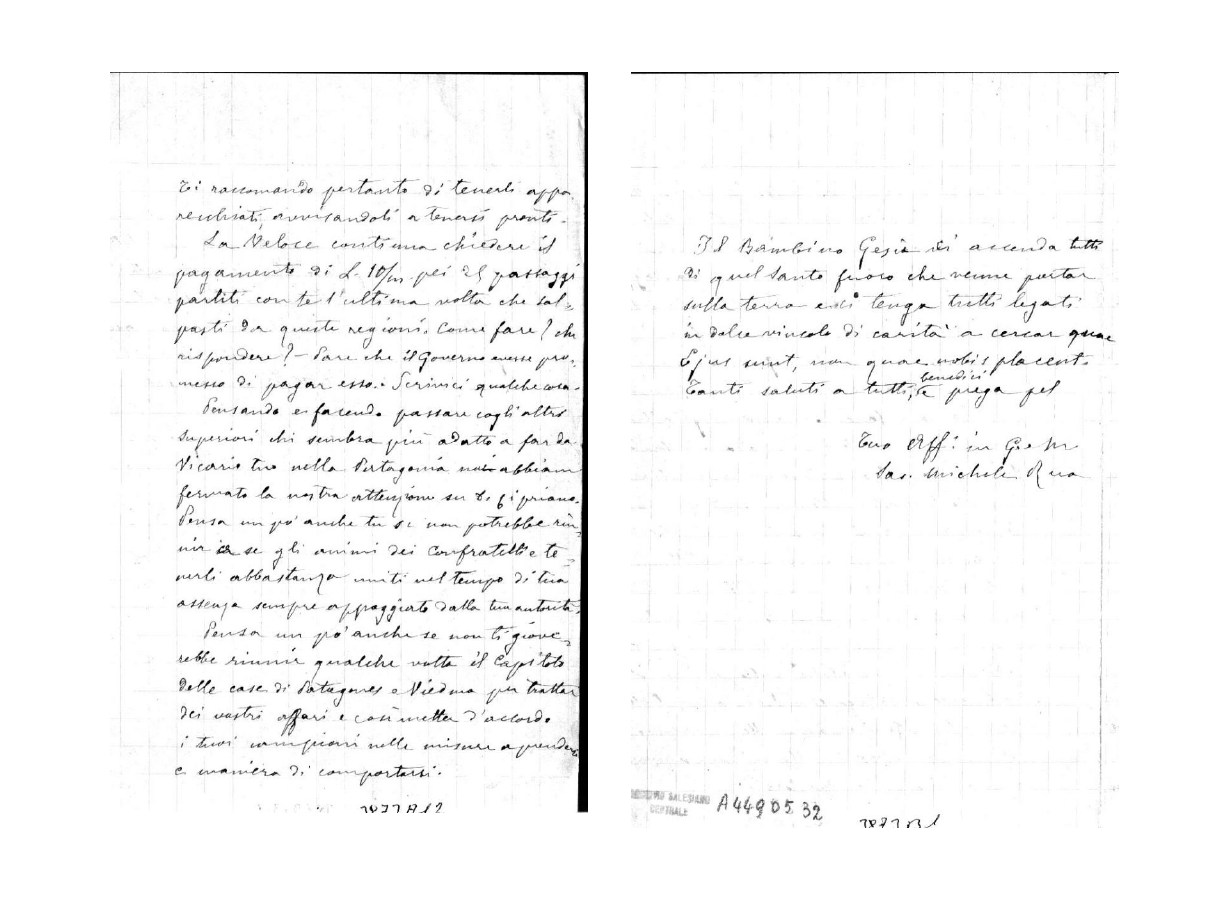 Ti raccomando pertanto di tenerli appa-
recchiati, avvisandoli a tenersi pronti.
La Veloce continua chiedere il
pagamento di L. 10/m pei 25 passaggi
partiti con te l'ultima volta che sal-
pasti da queste regioni. Come fare? che
rispondere? - Pare che il Governo avesse pro-
messo di pagar esso. - Scrivici qualche cosa.
Pensando e facendo passare cogli altri
superiori chi sembra più adatto a far da
Vicario tuo nella Patagonia noi abbiam
fermato la nostra attenzione su D.
Pensa un po' anche tu se non potrebbe riu-
nir a se gli animi dei Confratelli e te-
nerli abbastanza uniti nel tempo di tua
assenza sempre appoggiato dalla tua autorità.
Pensa un po' anche se non ti giove-
rebbe riunir qualche volta il Capitolo
delle case di Patagones e Viedma per trattar
dei vostri affari e così metter d'accordo
i tuoi campioni nelle misure a prendere
e maniera di comportarsi.
Il Bambino Gesù ci accenda tutti
di quel santo fuoco che venne portar
sulla terra e ci tenga tutti legati
in dolce vincolo di carità a cercar quae
Ejus sunt, non quae nobis placent.
Tanti saluti a tutti, benedici e prega pel
Tuo Aff. in G e M
Sac. Michele Rua
SALESIANO
CENTRALE
A4490532